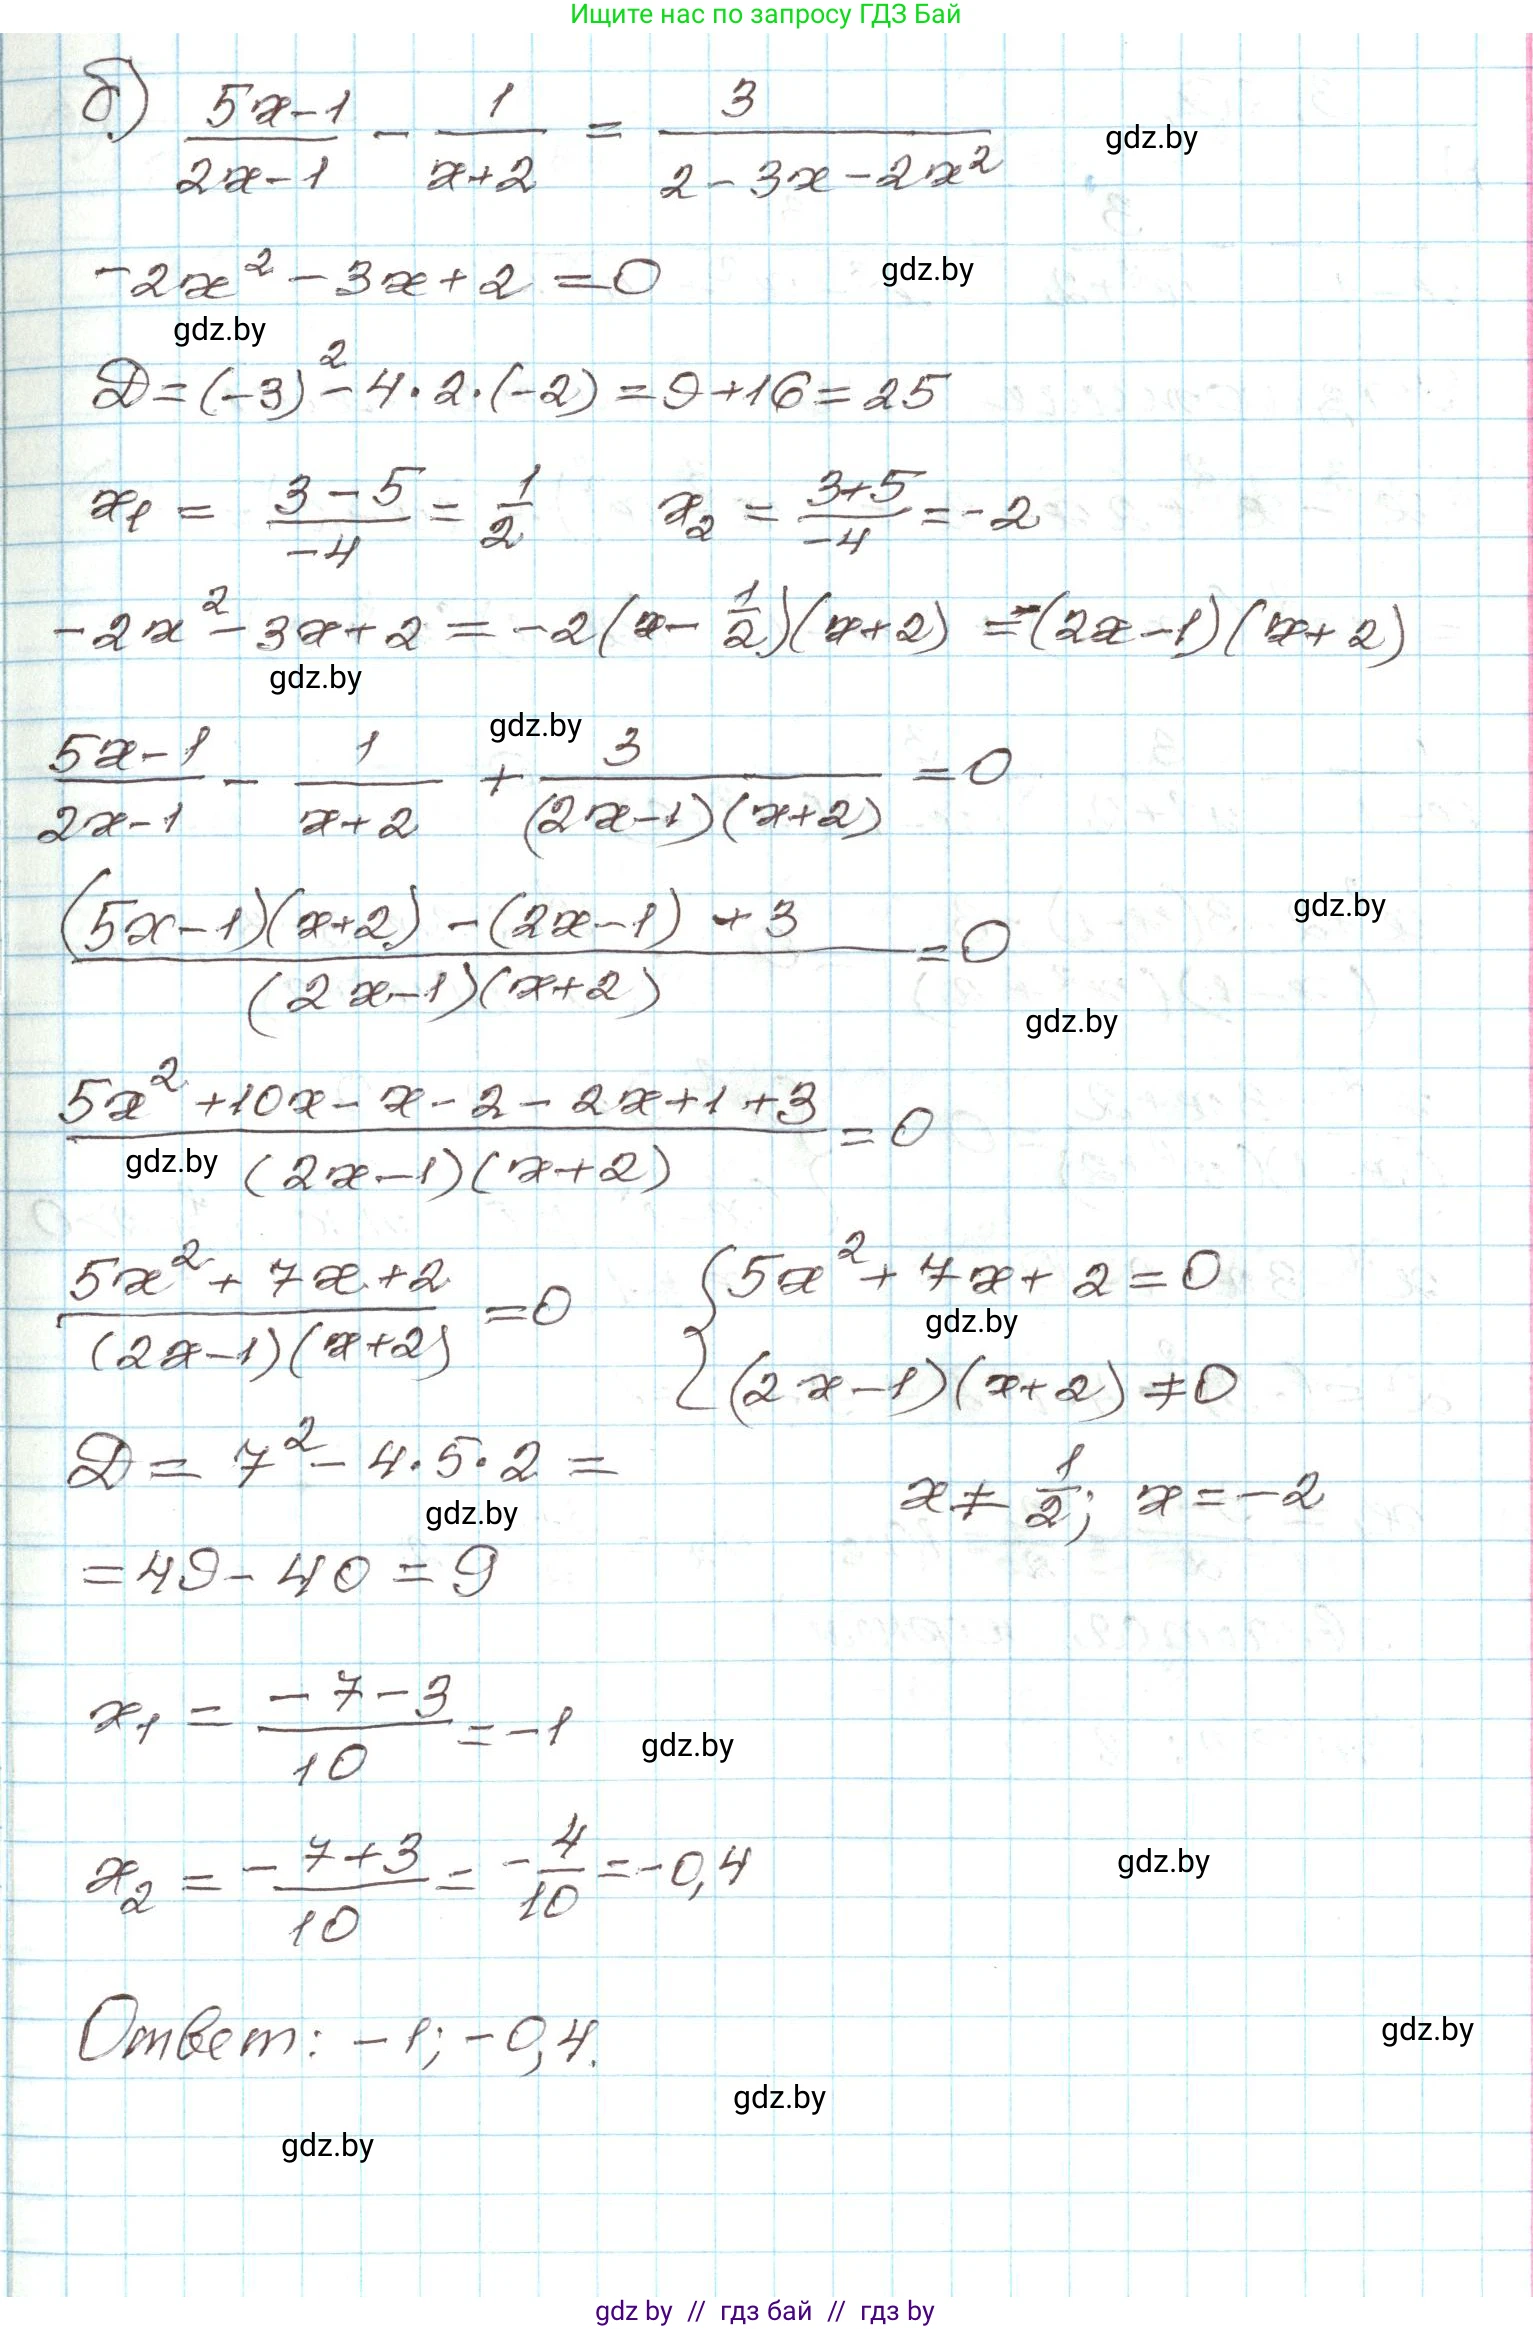 Ищите нас по запросу ГДЗ Бай
б) (5x-1)/(2x-1) - 1/(x+2) = 3/(2-3x-2x²)
gdz.by
-2x² - 3x + 2 = 0
gdz.by
gdz.by
D = (-3)² - 4·2·(-2) = 9+16 = 25
x₁ = (3-5)/(-4) = 1/2    x₂ = (3+5)/(-4) = -2
-2x² - 3x + 2 = -2(x - 1/2)(x+2) = -(2x-1)(x+2)
gdz.by
gdz.by
(5x-1)/(2x-1) - 1/(x+2) + 3/((2x-1)(x+2)) = 0
gdz.by
((5x-1)(x+2) - (2x-1) + 3)/((2x-1)(x+2)) = 0
gdz.by
(5x² + 10x - x - 2 - 2x + 1 + 3)/((2x-1)(x+2)) = 0
gdz.by
(5x² + 7x + 2)/((2x-1)(x+2)) = 0    { 5x² + 7x + 2 = 0
gdz.by
(2x-1)(x+2) ≠ 0
D = 7² - 4·5·2 =
x ≠ 1/2; x = -2
gdz.by
= 49 - 40 = 9
x₁ = (-7-3)/10 = -1
gdz.by
x₂ = (-7+3)/10 = -4/10 = -0,4
gdz.by
Ответ: -1; -0,4.
gdz.by
gdz.by
gdz.by
gdz by // гдз бай // гдз by